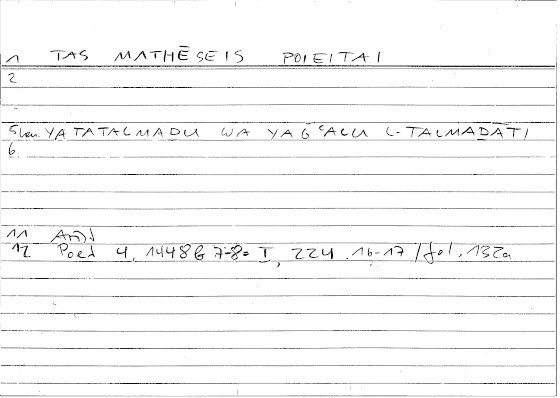 1 TAS MATHĒSEIS POIEITAI
2
5 YATATALMADU WA YAǦʿALU L-TALMADĀTI
6
11
12 Poet 4, 1448b 7-8= I, 224.16-17 / fol. 132a